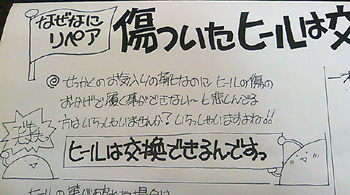 なぜなに
リペア
傷ついたヒールは交
◎せっかくのお気入りの靴なのにヒールの傷の
おかげで履く事ができない〜と悲しんでる
方はいらっしゃいませんか？いらっしゃいますよね!!
ヒールは交換できるんですっ